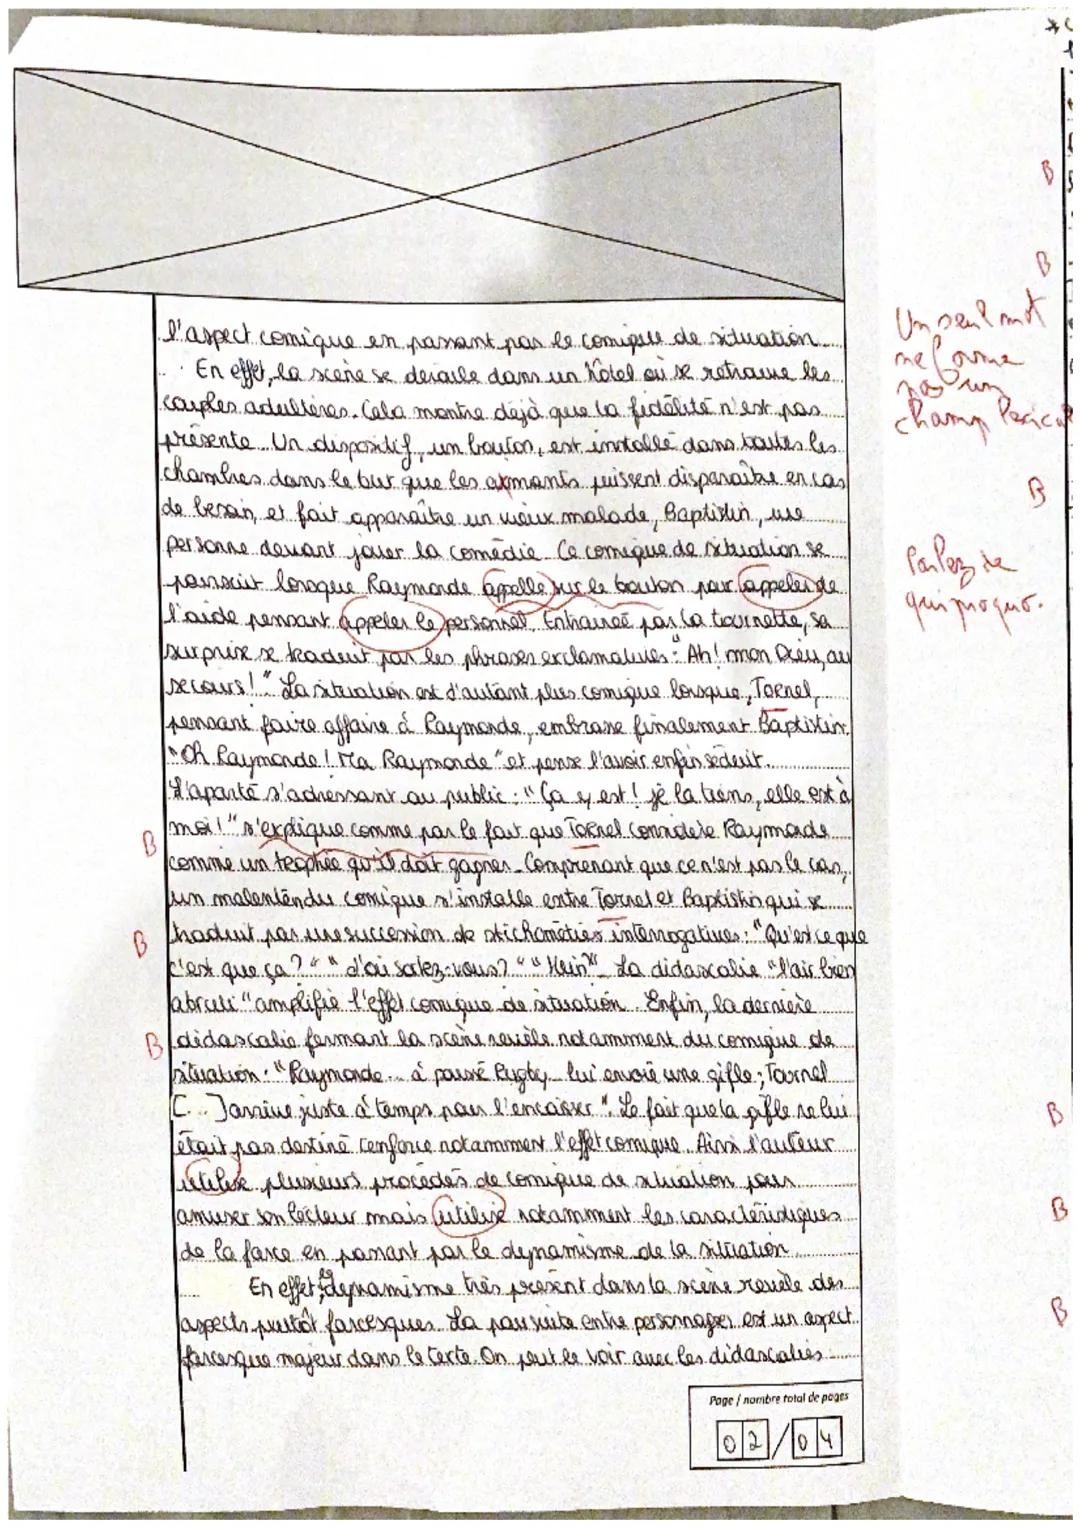 l'aspect comique en passant par le comique de situation
En effet, la scène se déroule dans un hôtel où se retrouve les
couples adultères. Cela montre déjà que la fidélité n'est pas
présente. Un dispositif, un bouton, est installé dans toutes les
chambres dans le but que les amants puissent disparaître en cas
de besoin, et fait apparaître un vieux malade, Baptistin, une
personne devant jouer la comédie. Ce comique de situation se
poursuit lorsque Raymonde appelle sur le bouton pour appeler de
l'aide pensant appeler le personnel. Entrainée par la tournette, sa
surprise se traduit par les phrases exclamatives : "Ah ! mon Dieu, au
secours !" La situation est d'autant plus comique lorsque, Tornel,
pensant faire affaire à Raymonde, embrasse finalement Baptistin.
"Oh Raymonde ! Ma Raymonde" et pense l'avoir enfin séduit.
L'aparté s'adressant au public : "Ça y est ! je la tiens, elle est à
moi !" s'explique comme par le fait que Tornel considère Raymonde
comme un trophée qu'il doit gagner. Comprenant que ce n'est pas le cas,
un malentendu comique s'installe entre Tornel et Baptistin qui se
traduit par une succession de stichométies interrogatives : "Qu'est ce que
c'est que ça ?" "d'où sortez-vous ?" "Hein". La didascalie "l'air bien
abruti" amplifie l'effet comique de situation. Enfin, la dernière
didascalie fermant la scène révèle notamment du comique de
situation : "Raymonde... a poussé Rugby lui envoie une gifle ; Tournel
[...] arrive juste à temps pour l'encaisser". Le fait que la gifle ne lui
était pas destiné renforce notamment l'effet comique. Ainsi l'auteur
utilise plusieurs procédés de comique de situation pour
amuser son lecteur mais utilise notamment les caractéristiques
de la farce en passant par le dynamisme de la situation
En effet, le dynamisme très présent dans la scène révèle des
aspects plutôt farcesques. La poursuite entre personnages est un aspect
farcesque majeur dans le texte. On peut le voir avec les didascalies
Page / nombre total de pages
02 / 04
B
B
B
Un seul mot
ne forme
pas un
champ lexical
Parlez de
quiproquo.
B
B
B
B
B
B